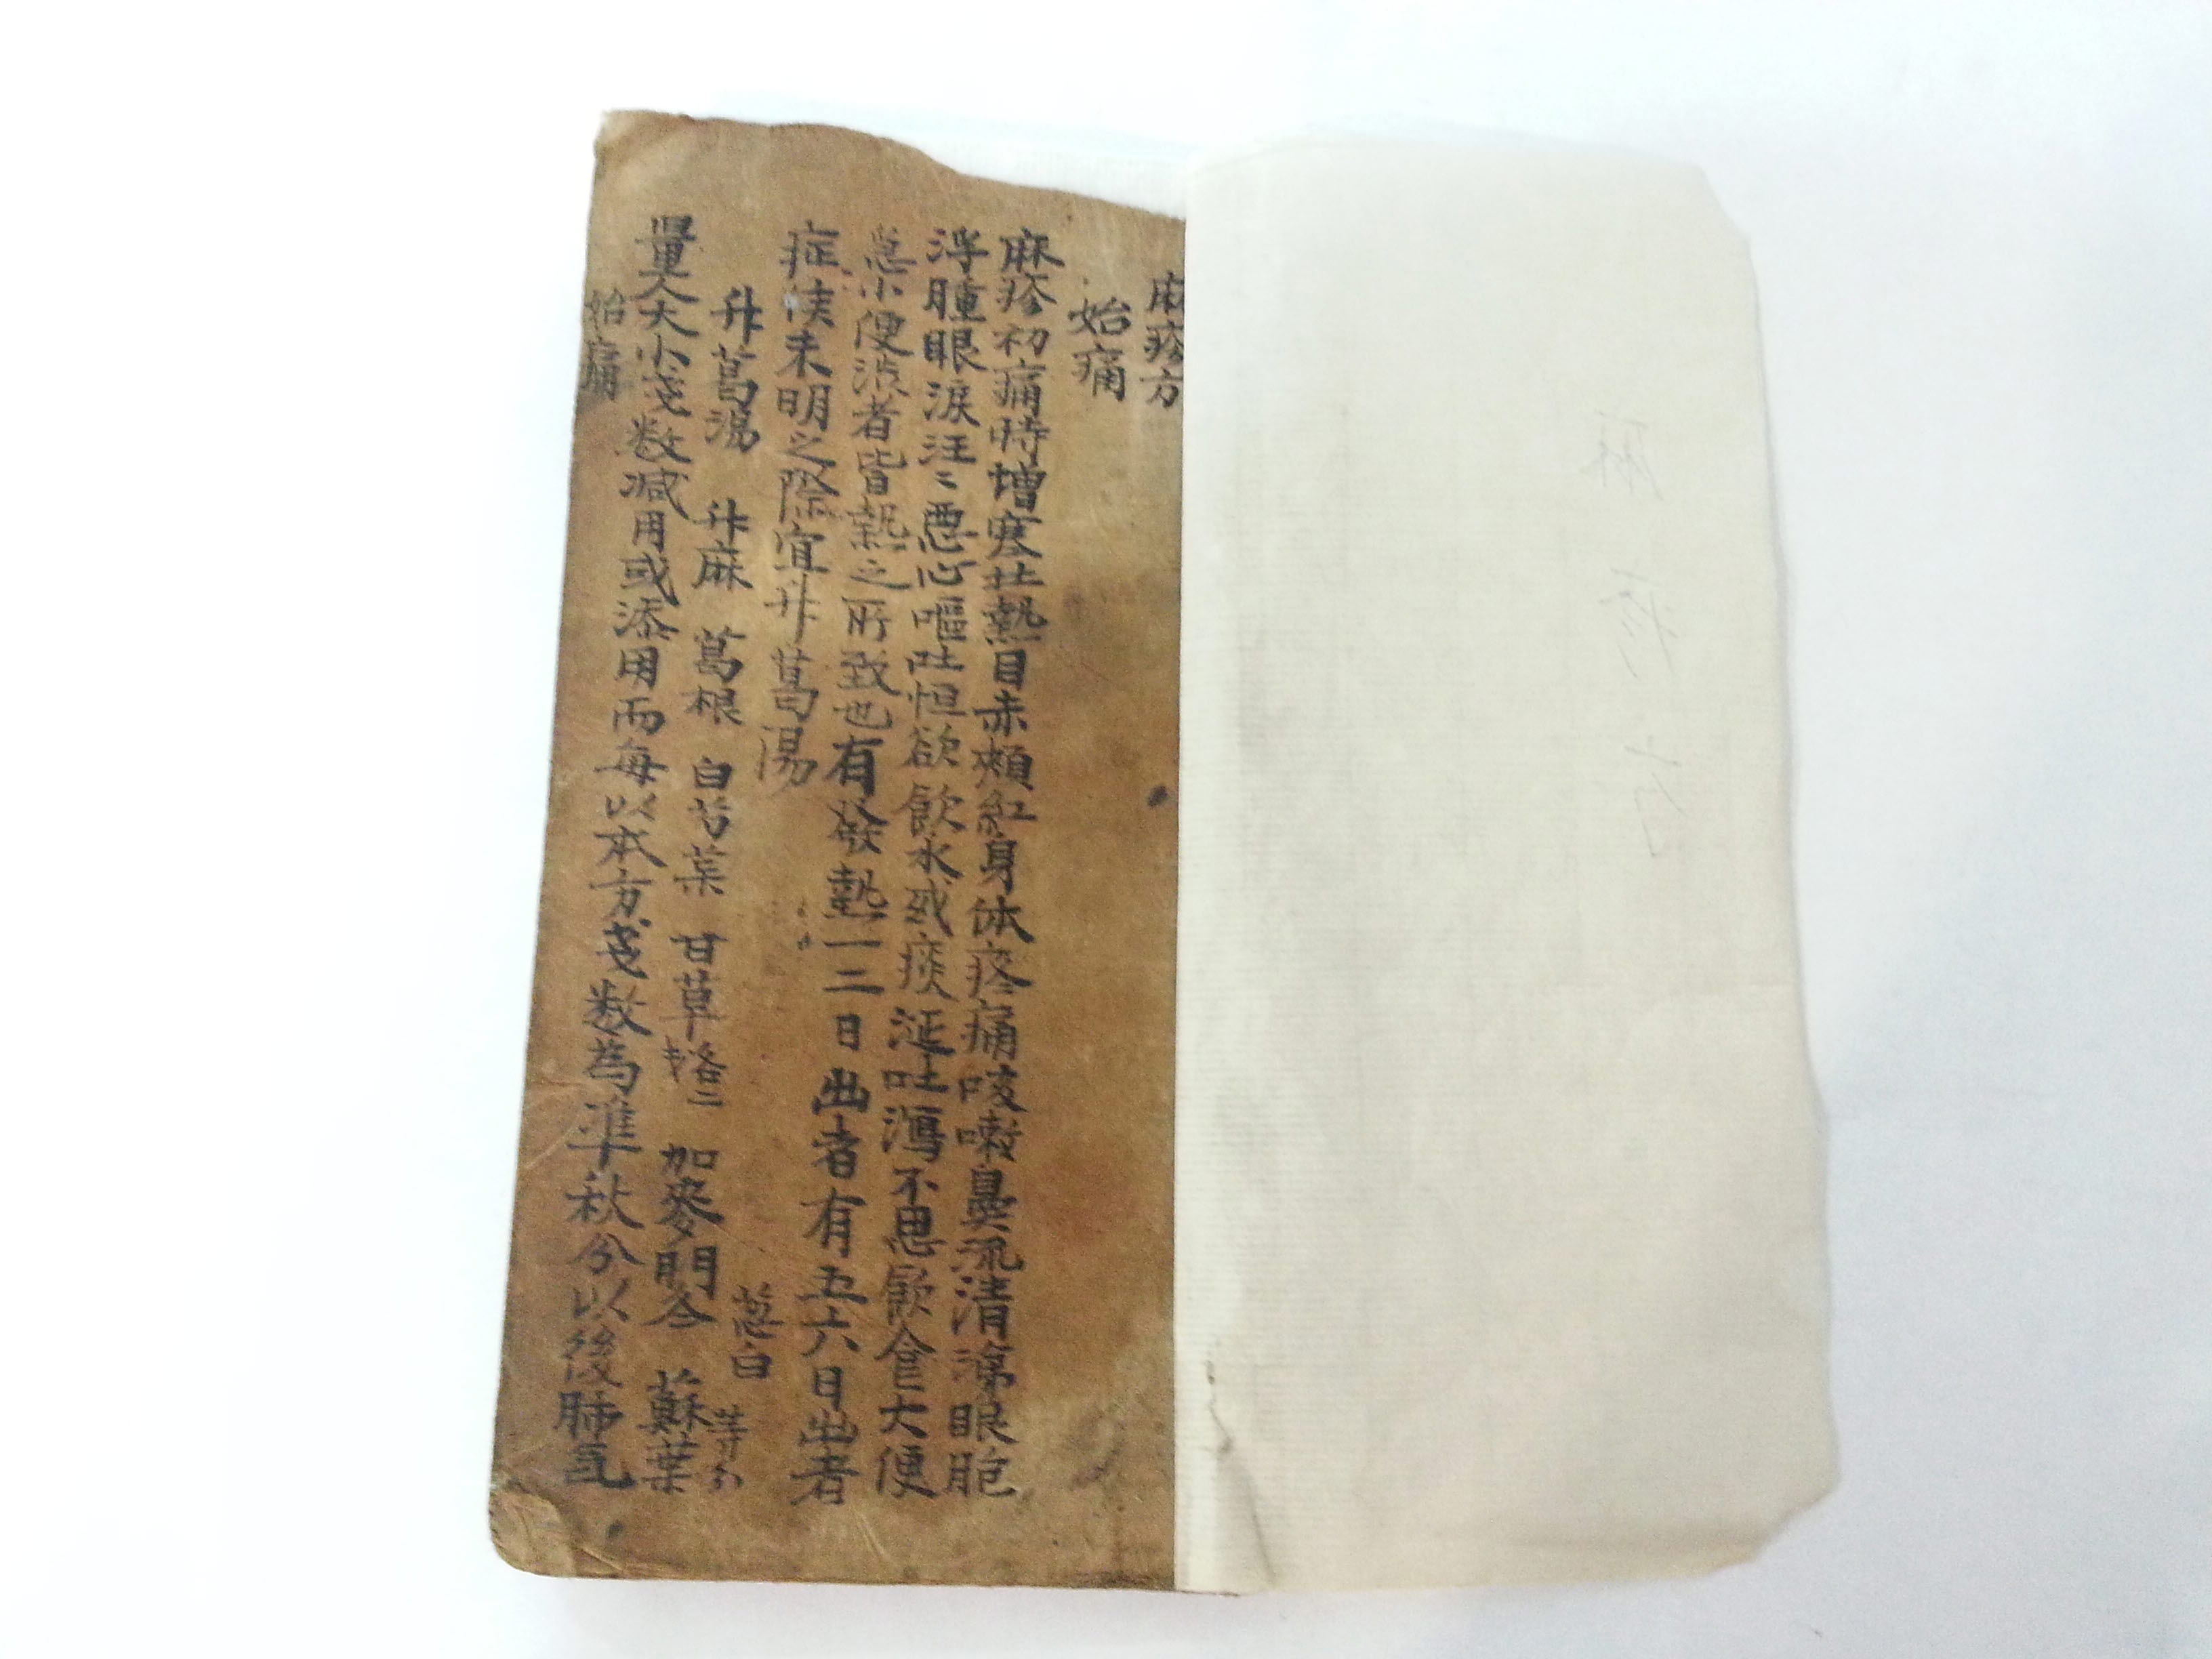 麻疹方
始痛
麻疹初痛時増寒壯熱目赤頰紅身体疼痛咳嗽鼻流清涕眼胞
浮腫眼淚汪〻惡心嘔吐恒欲飮水或痰涎吐瀉不思飮食大便
小便澁者皆熱之所致也有發熱一二日出者有五六日出者
症候未明之際宜升葛湯
升葛湯 升麻 葛根 白芍薬 甘草 加麥門冬 蘇葉
葱白 等分
量人大小戔数减用或添用而每以本方戔数為準秋分以後肺気
始痛
麻疹方